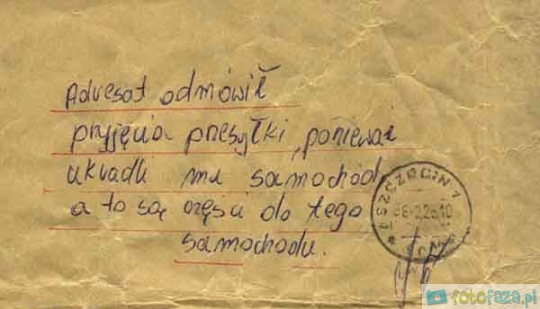 Adresat odmówił
przyjęcia przesyłki, ponieważ
ukradli mu samochód,
a to są części do tego
samochodu.
SZCZECIN 1
fotofaza.pl